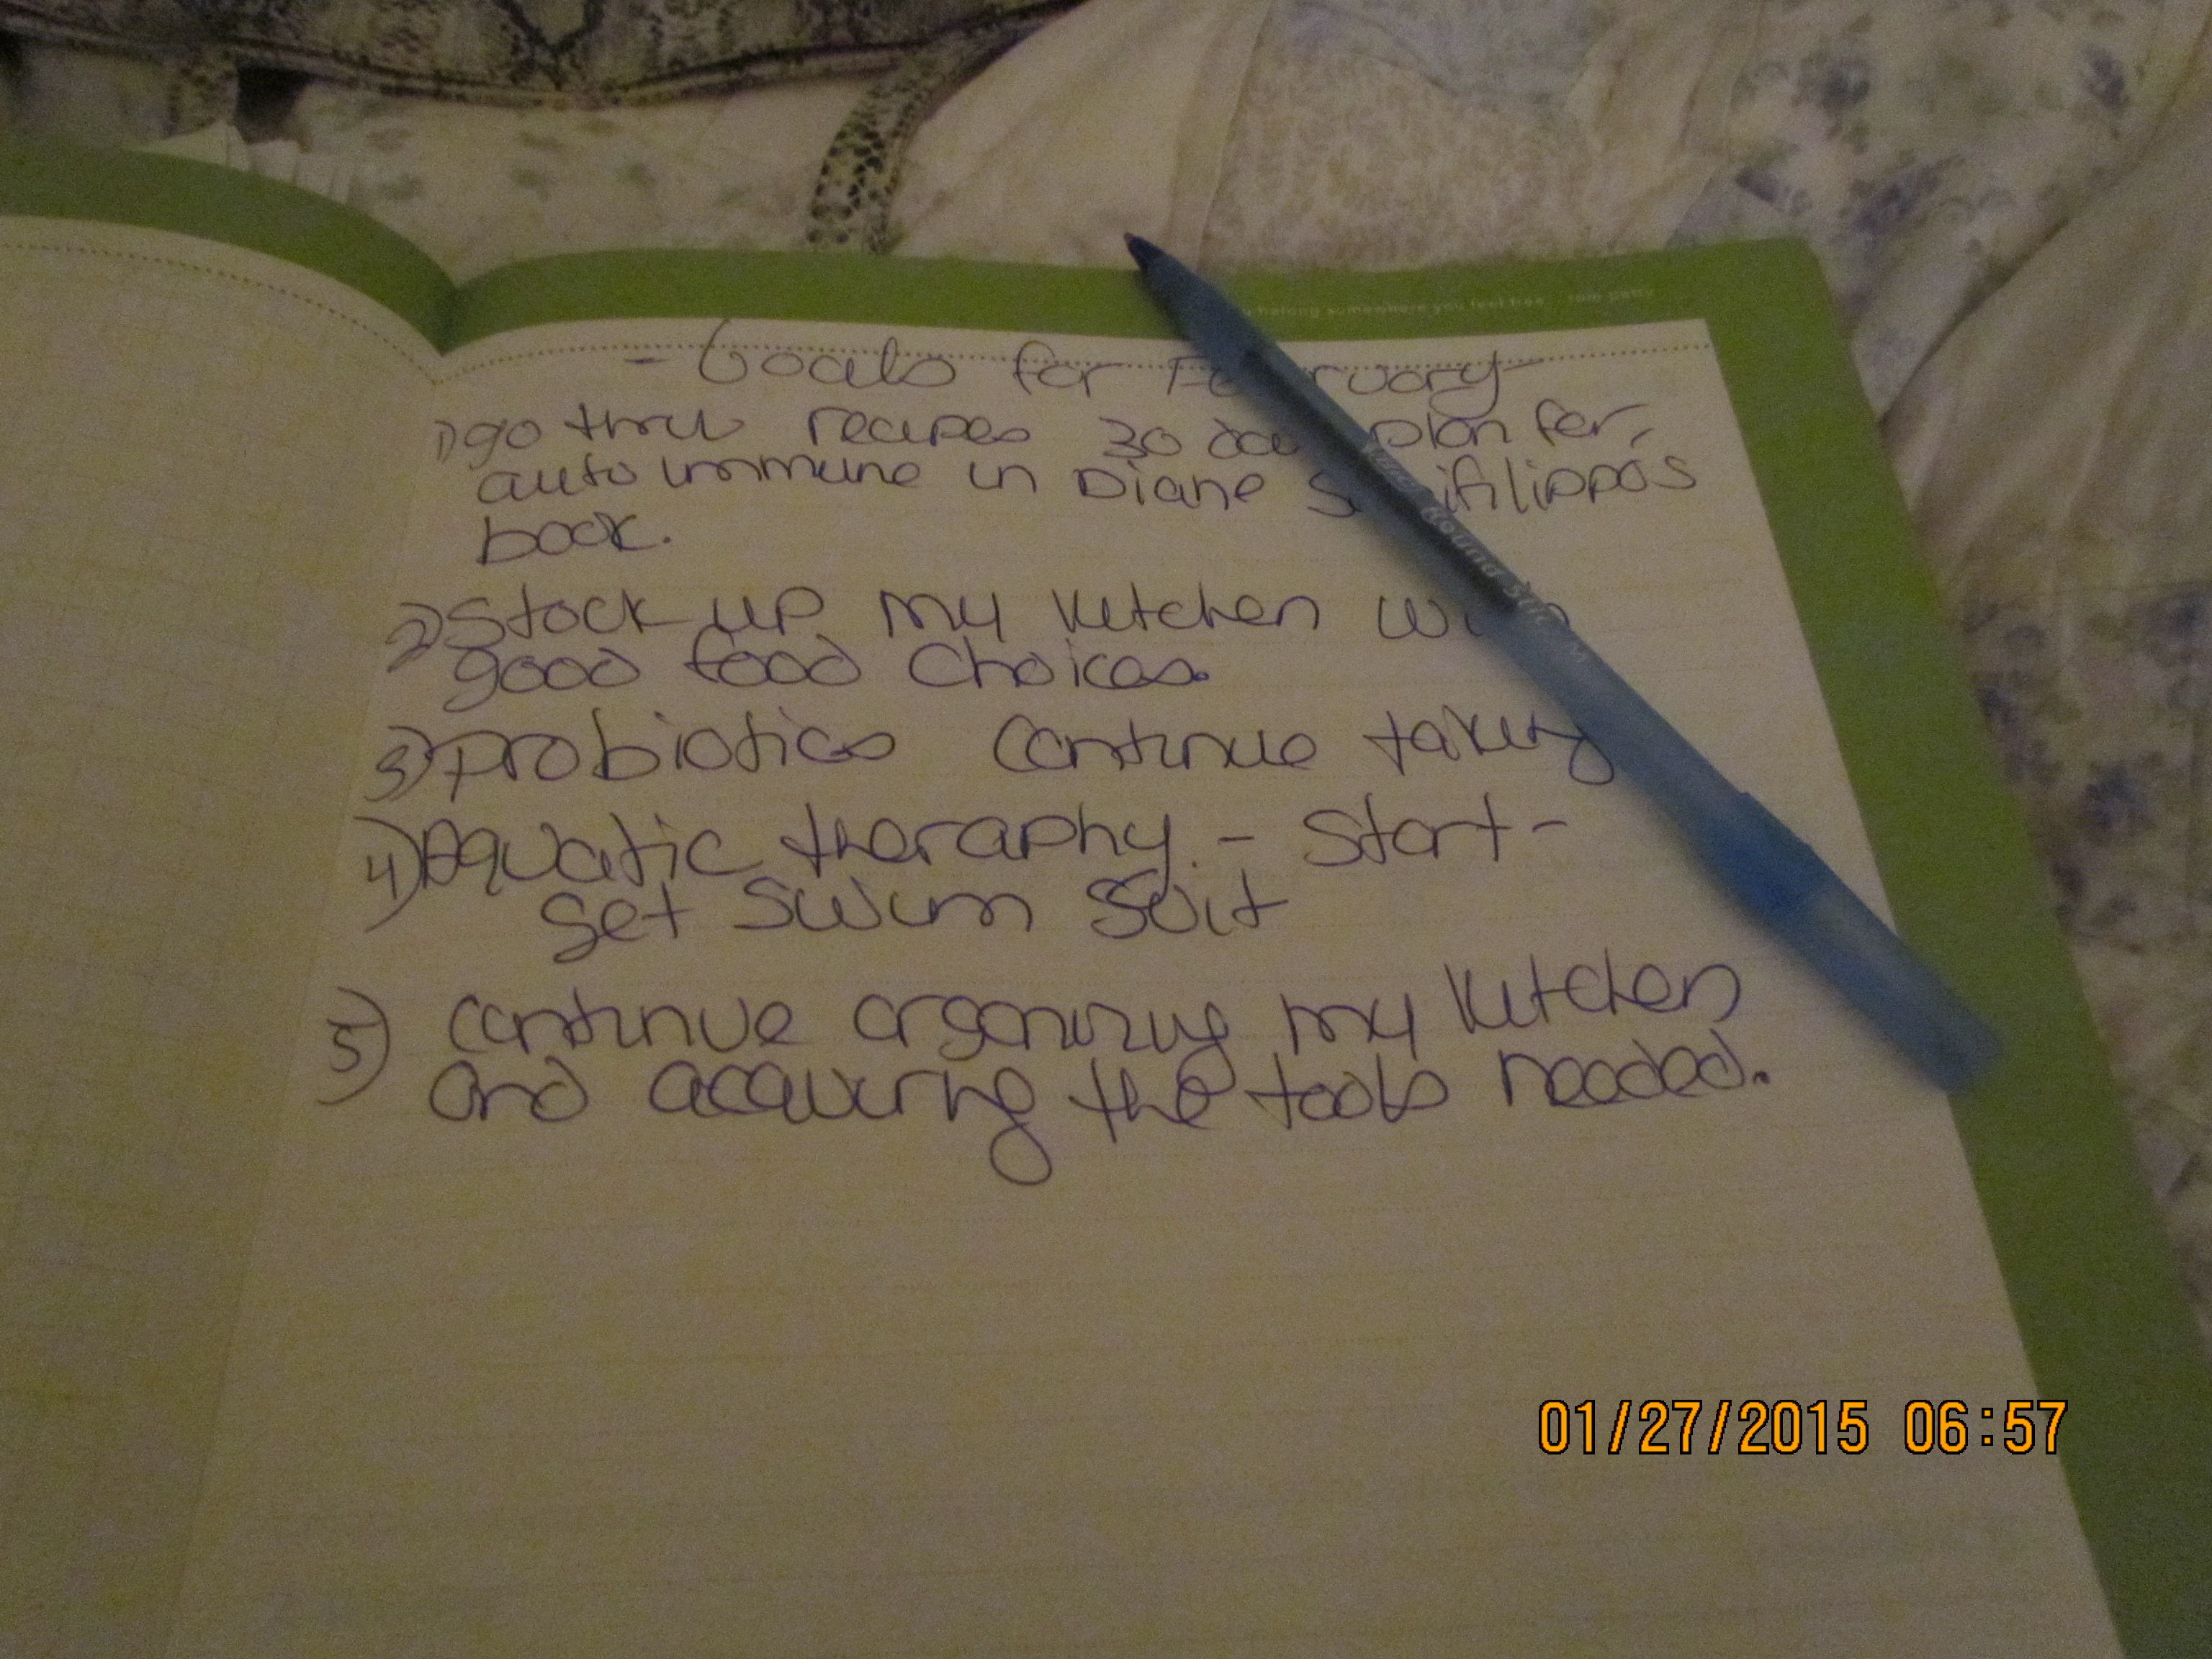 belong somewhere you feel free. tom petty
- Goals for February -
1) go thru recipes 30 day plan for
autoimmune in Diane Sanfilippo's
book.
2) Stock up my kitchen with
good food choices.
3) probiotics continue taking
4) Aquatic theraphy. - Start -
get swim suit
5) continue organizing my kitchen
and acquiring the tools needed.
Round Stic M
01/27/2015 06:57